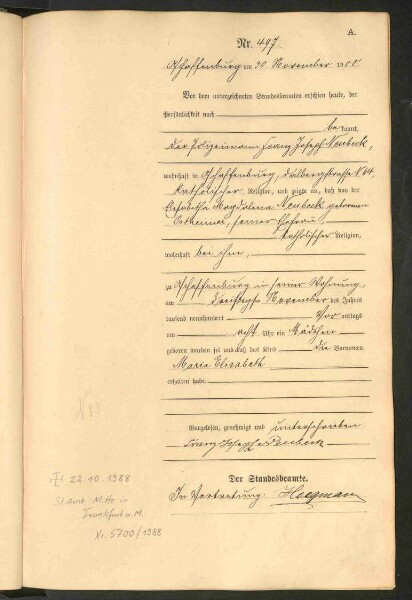 A.
Nr. 497
Aschaffenburg am 30 November 1900.
Vor dem unterzeichneten Standesbeamten erschien heute, der
Persönlichkeit nach
be kannt,
der Franz Joseph Neubeck,
wohnhaft in Aschaffenburg, Dalbergstrasse No 64
katholischer Religion, und zeigte an, daß von der
Elisabetha Magdalena Neubeck geborenen
seiner Ehefrau,
katholischer Religion,
wohnhaft bei ihm,
zu Aschaffenburg in seiner Wohnung,
am November des Jahres
tausend neunhundert Vormittags
um acht Uhr ein Mädchen
geboren worden sei und daß das Kind die Vornamen
Maria Elisabeth
erhalten habe
Vorgelesen, genehmigt und unterschrieben
Franz Joseph Neubeck
Der Standesbeamte.
In Vertretung:
22.10.1988
St.Amt Mitte in
Frankfurt a.M.
Nr. 5700/1988